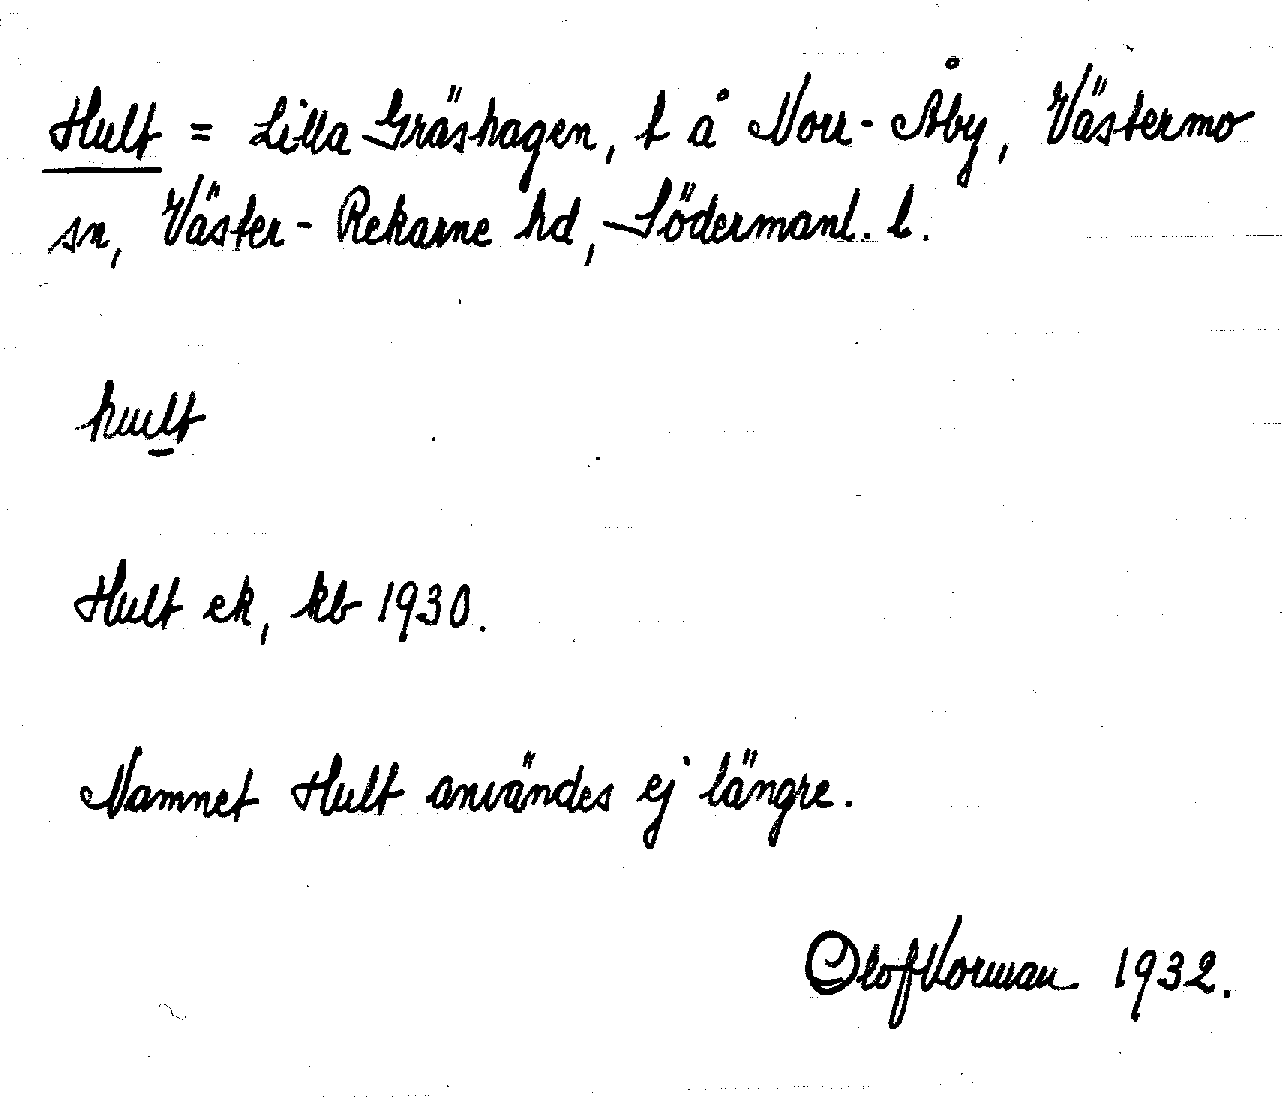 Hult = Lilla Gräshagen, t å Norr-Åby, Västermo
sn, Väster-Rekarne hd, Södermanl. l.
hult
Hult ek, kb 1930.
Namnet Hult användes ej längre.
Olof Norman 1932.